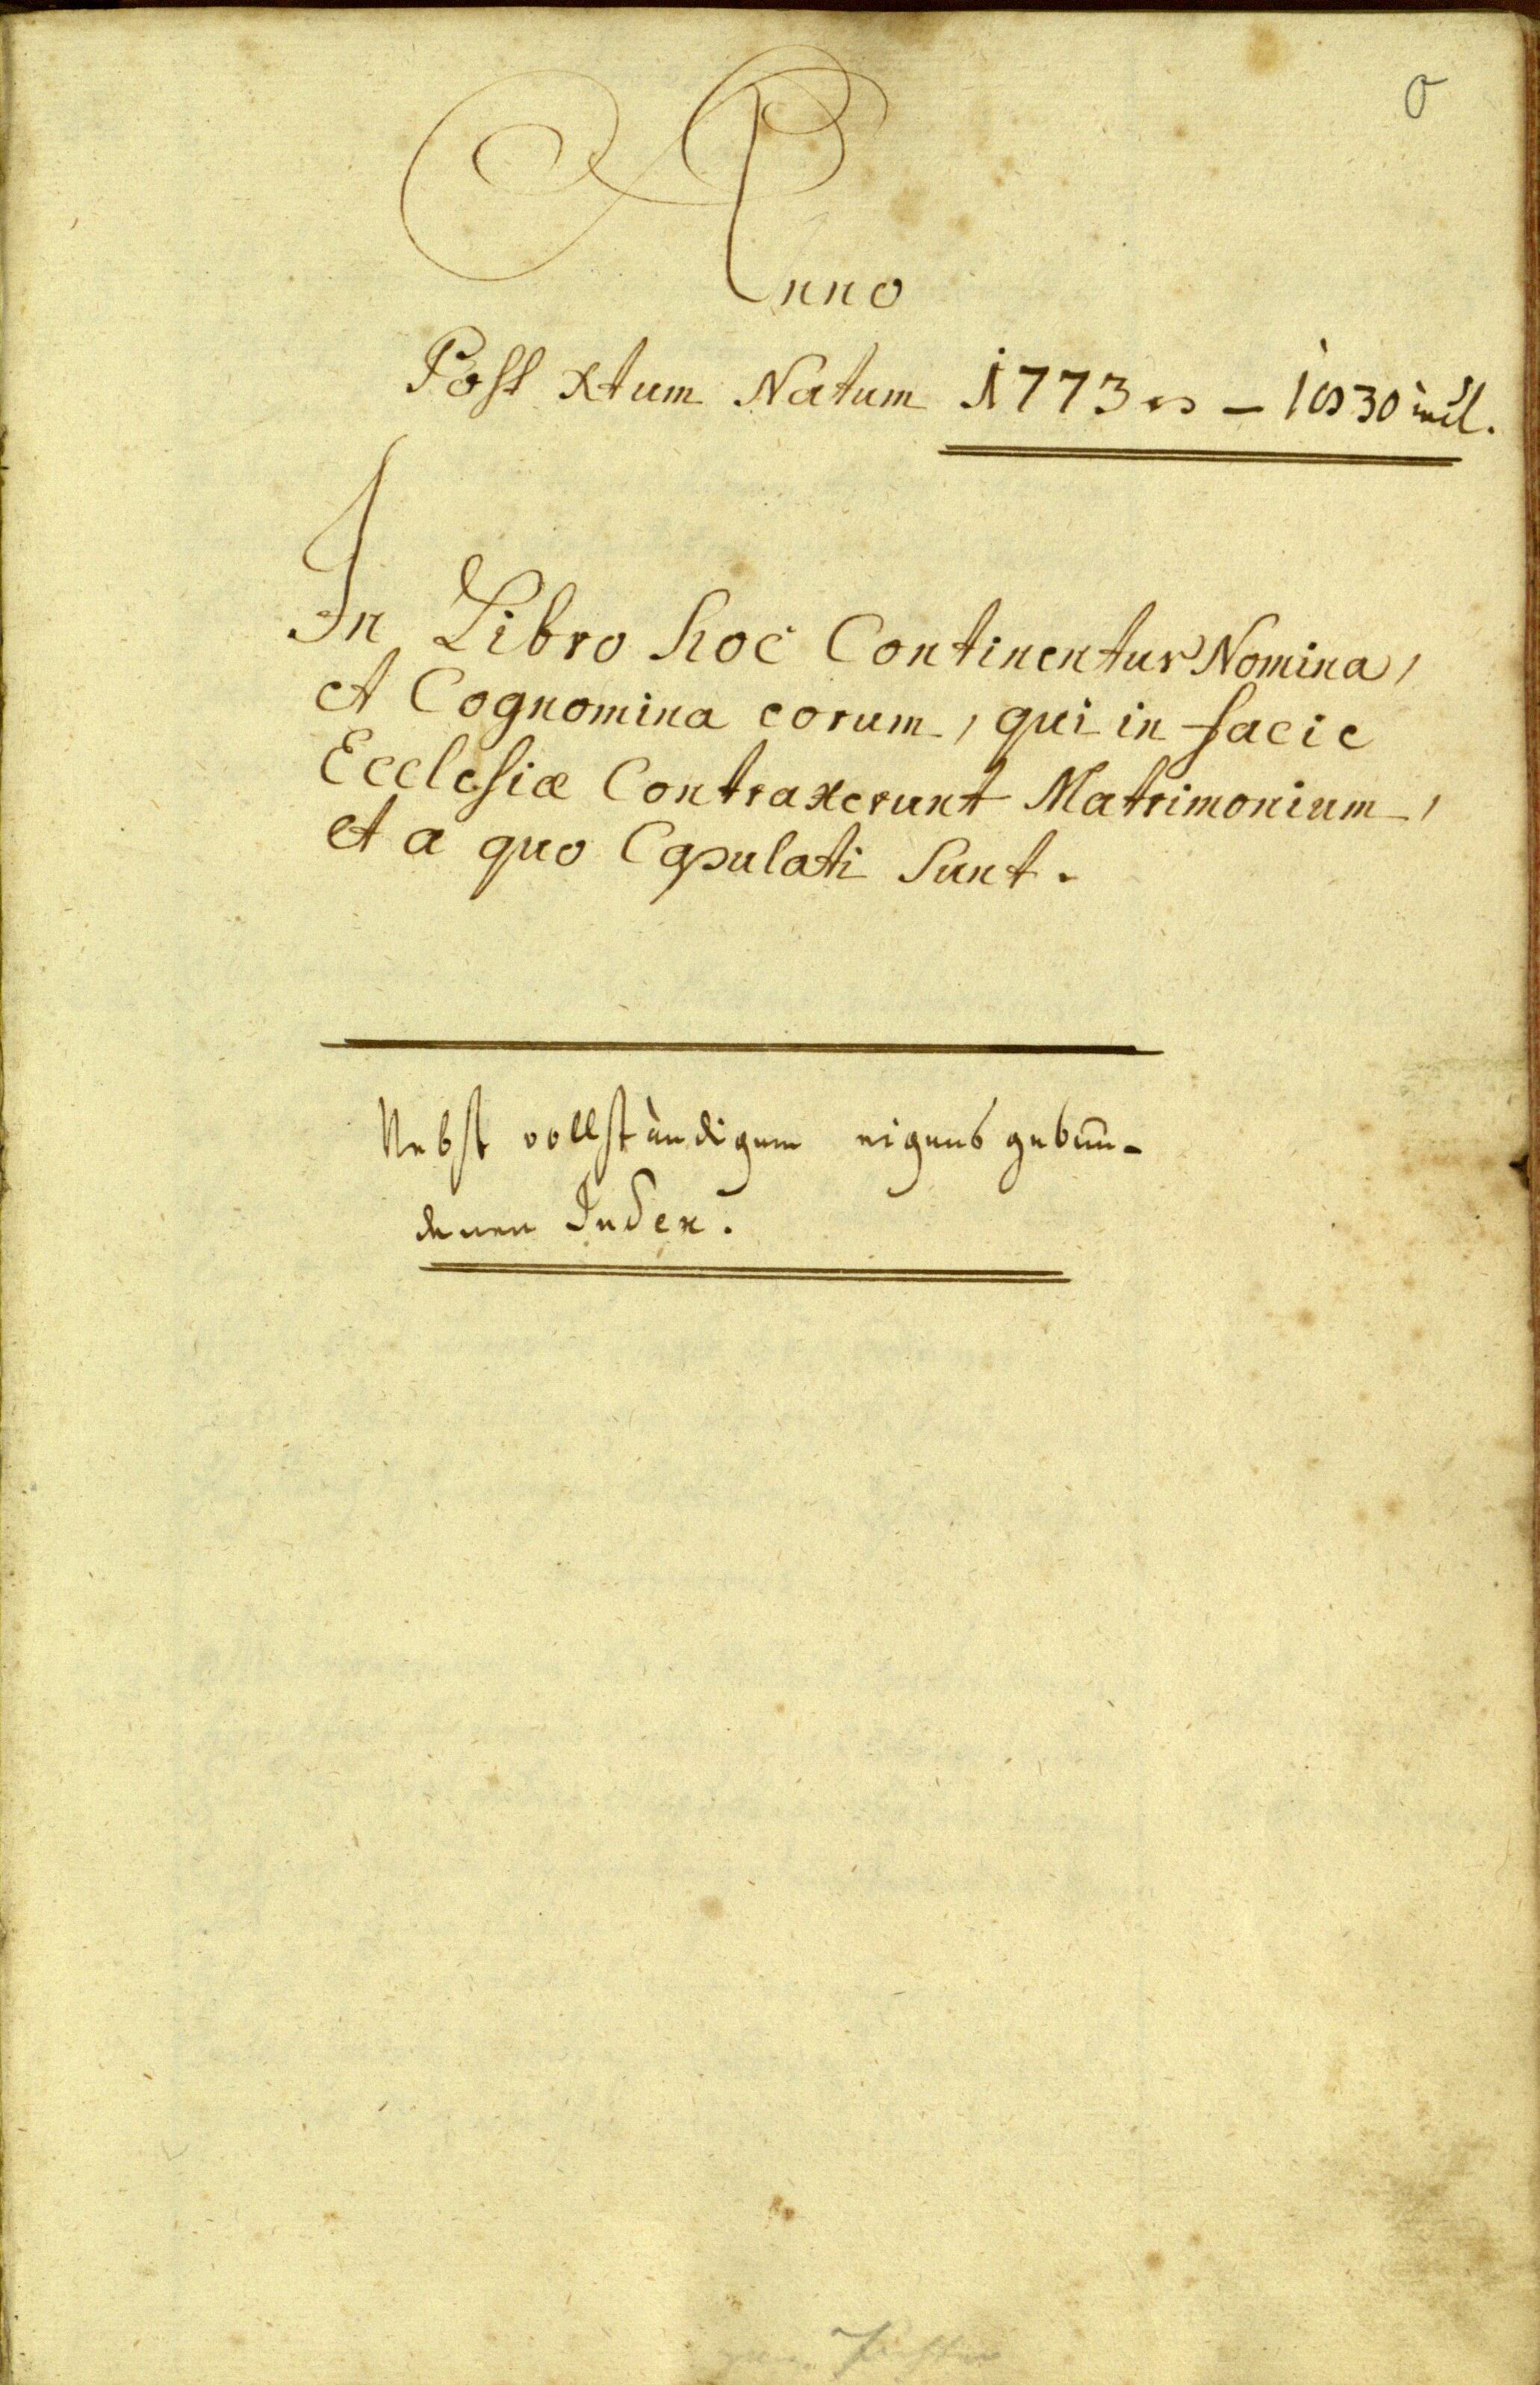 0
Anno
Post Xtum Natum 1773 – 1830 incl.
In Libro hoc Continentur Nomina,
et Cognomina eorum, qui in facie
Ecclesiæ Contraxerunt Matrimonium,
et a quo Copulati Sunt.
Nebst vollständigem eigens gebun-
denen Index.